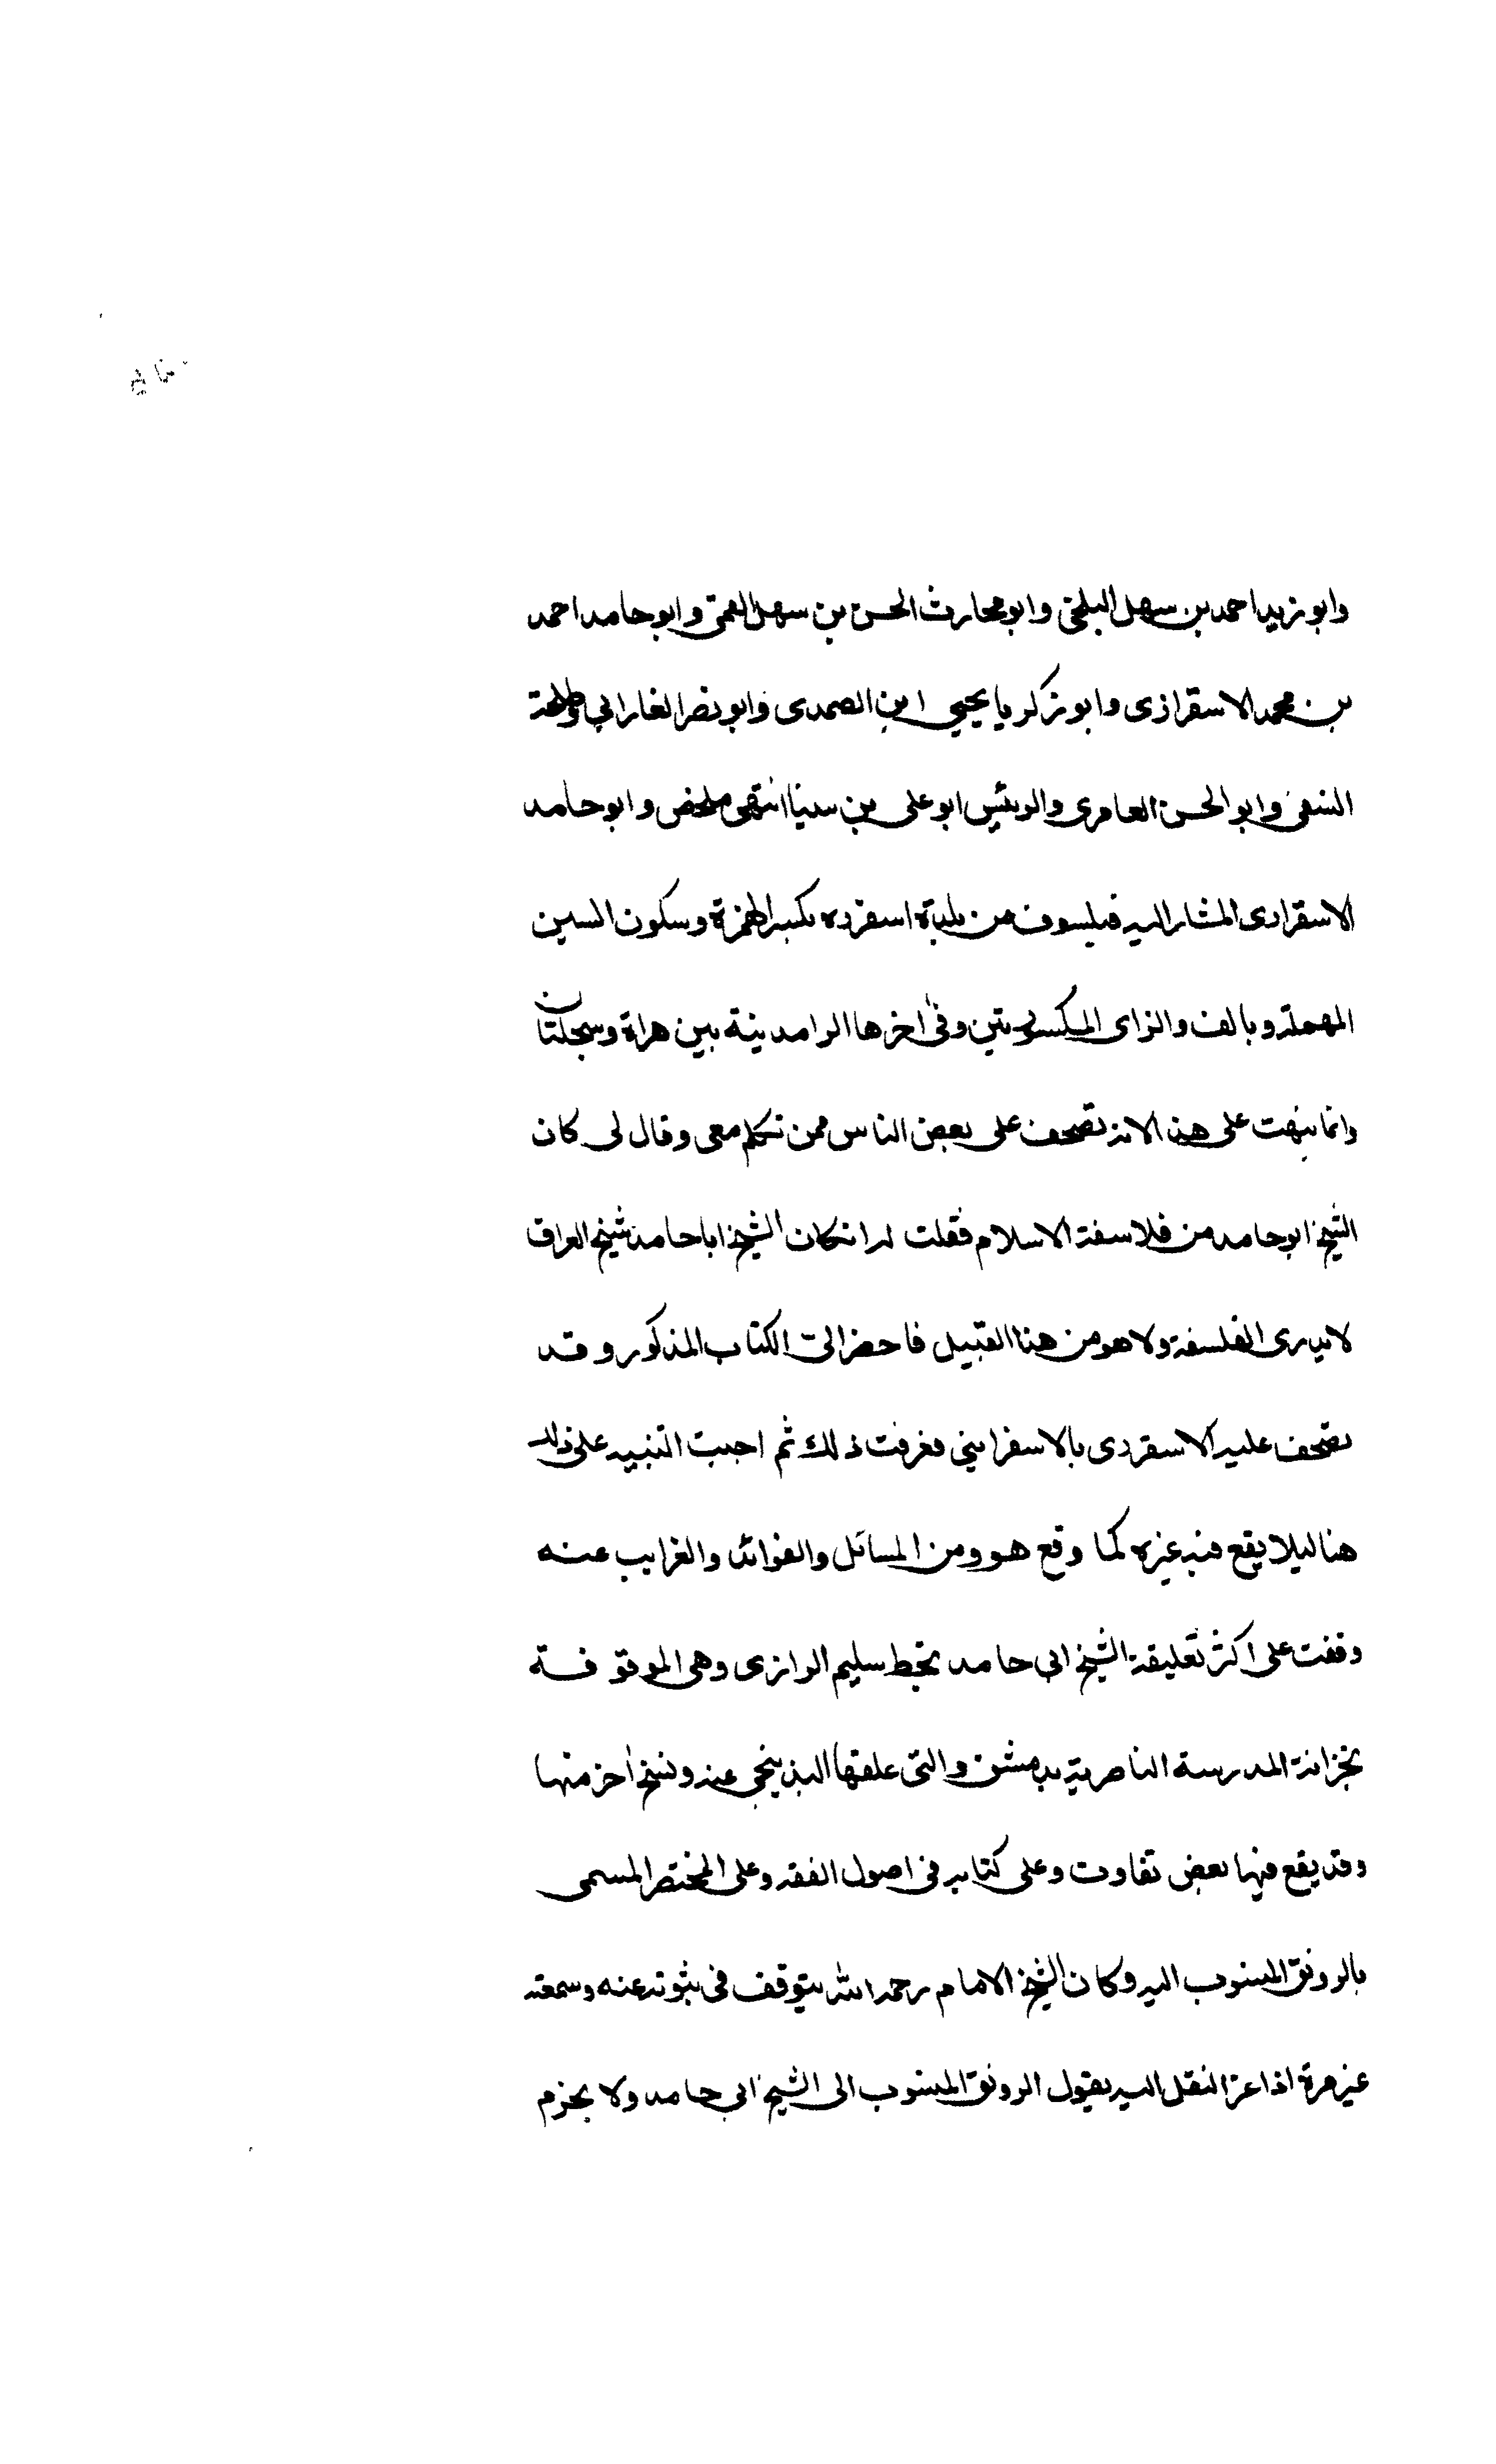 وابو زيد احمد بن سهل البلخى وابو محارث الحسن بن سهل القمى وابو حامد احمد
بن محمد الاسقرازى وابو زكريا يحيى ابن الصمدى وابو نصر الفارابي وطلحة
النسفى وابو الحسن العامرى والرئيس ابو على بن سينا انتهى ملخص وابو حامد
الاسقرارى المشار اليه فيلسوف من بلدة اسقرده بكسر الهمزة وسكون السين
المهملة وبالف والزاى المكسورتين وفى اخرها الرا مدينة بين هراة وسجلتان
وانما نبهت على هذا لانه تصحف على بعض الناس ممن تكلم معى وقال لى كان
الشيخ ابو حامد من فلاسفة الاسلام فقلت له انكان الشيخ ابا حامد شيخ العراق
لا يدرى الفلسفة ولا هو من هذا القبيل فاحضر الى الكتاب المذكور وقد
تصحف عليه الاسقردى بالاسفراينى فعرفت ذلك ثم احببت التنبيه على ذلك
هنا ليلا يقع فيه غيره كما وقع هو ومن المسائل والفوائد والغرايب عنه
وقفت على اكثر تعليقة الشيخ ابى حامد بخط سليم الرازى وهى الموقوفة
بخزانة المدرسة الناصرية بدمشق والتى علقها البندنيجى عنه ونسخ اخر منها
وقد يقع فيها بعض تفاوت وعلى كتابه فى اصول الفقه وعلى المختصر المسمى
بالرونق المنسوب اليه وكان الشيخ الامام رحمه الله يتوقف فى ثبوته عنه وسمعته
غير مرة اذا عزا النقل اليه يقول الرونق المنسوب الى الشيخ ابى حامد ولا يجزم